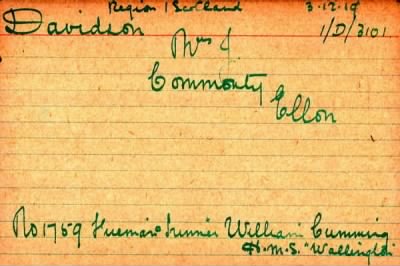 Region 1 Scotland 3.12.19
Davidson 1/D/3101
Mrs J.
Commonty
Ellon
No 1759 William Cumming
H.M.S. "Wallington"